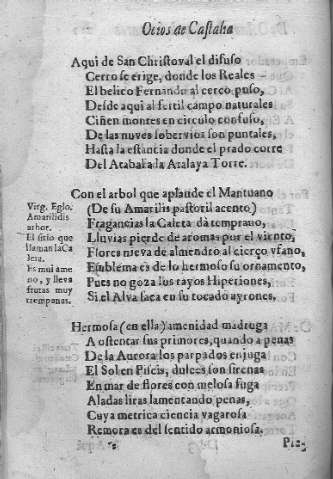 Ocios de Castalia
Aqui de San Christoval el difuso
Cerro se erige, donde los Reales
El belico Fernando al cerco puso,
Desde aqui al fertil campo naturales
Ciñen montes en circulo confuso,
De las nuves sobervios son puntales,
Hasta la estancia donde el prado corre
Del Atabal a la Atalaya Torre.
Con el arbol que aplaude el Mantuano
(De su Amarilis pastoril acento)
Fragancias la Caleta dà temprano,
Lluvias pierde de aromas por el viento,
Flores nieva de almendro al cierço vfano,
Emblema es de lo hermoso su ornamento,
Pues no goza los rayos Hiperiones,
Si el Alva saca en su tocado ayrones.
Virg. Eglo.
Amarilidis
arbor.
El sitio que
llaman la Ca
leta.
Es mui ame
no, y lleva
frutas muy
tempranas.
Hermosa (en ella) amenidad madruga
A ostentar sus primores, quando a penas
De la Aurora los parpados enjuga
El Sol en Piscis, dulces son sirenas
En mar de flores con melosa fuga
Aladas liras lamentando penas,
Cuya metrica ciencia vagarosa
Remora es del sentido armoniosa.